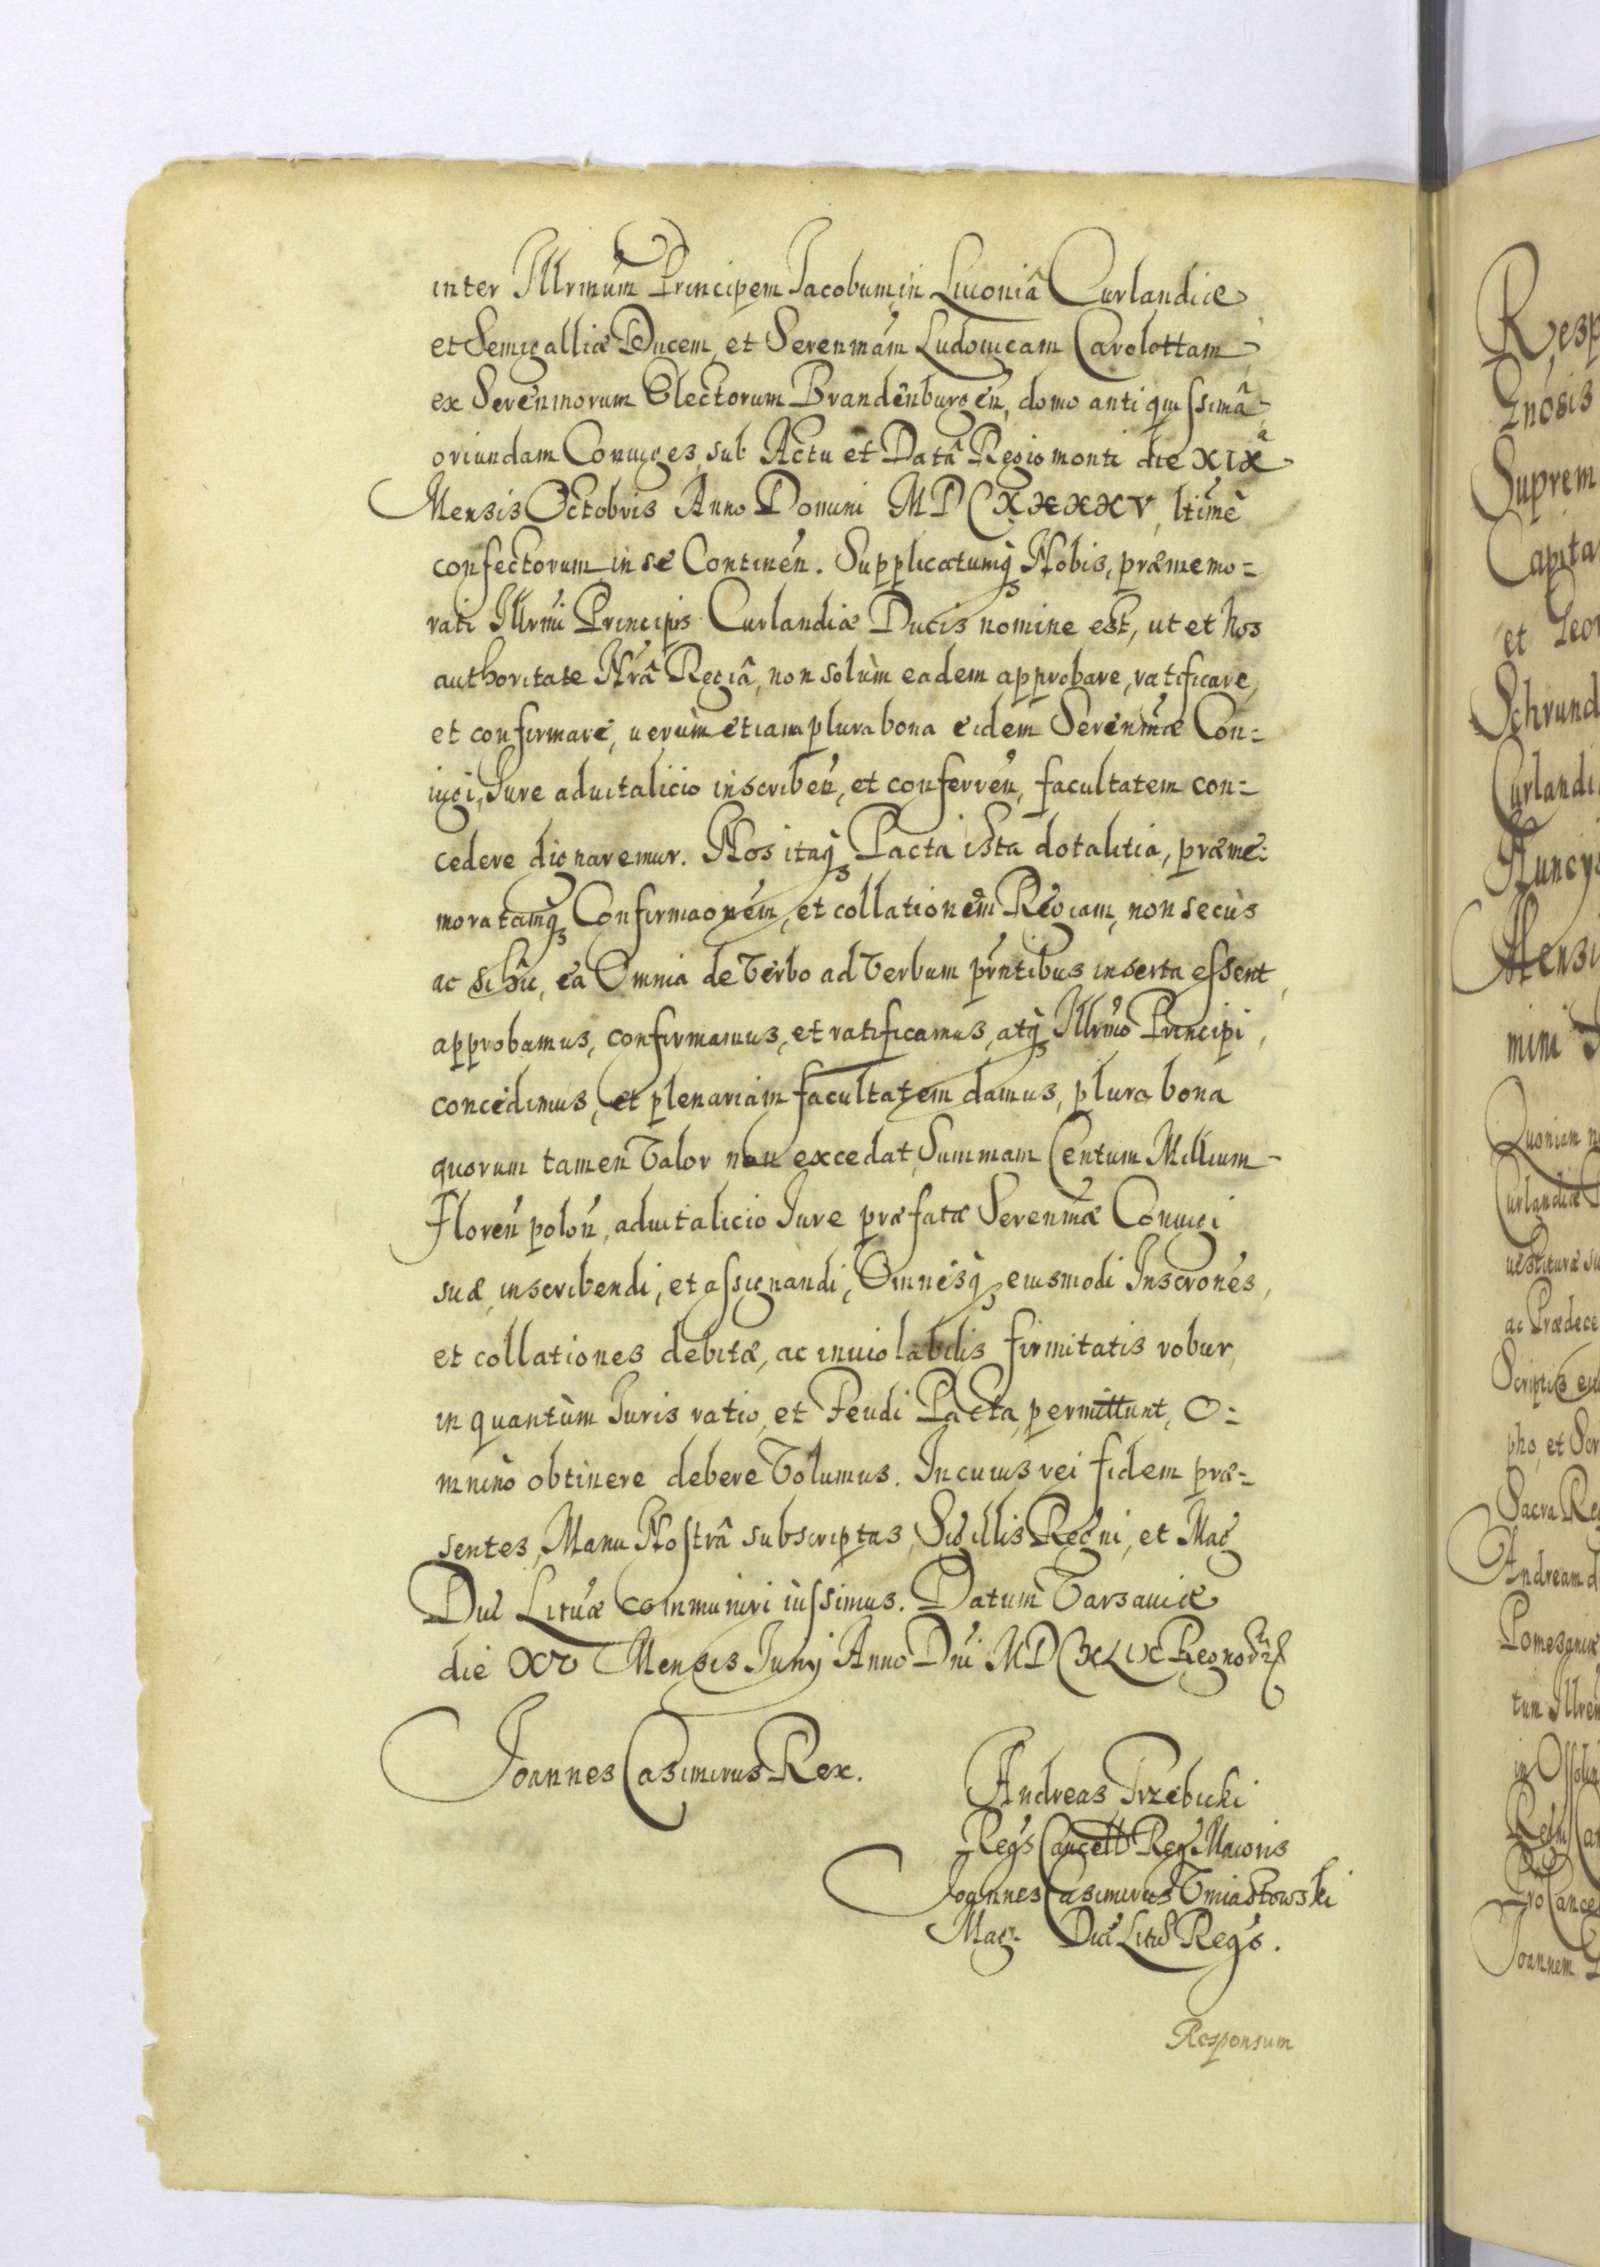 inter Illrmum Principem Jacobum, in Liuoniâ Curlandiæ
et Semigalliæ Ducem, et Serenmam Ludouicam Carolottam,
ex Serenmorum Electorum Brandenburgen, domo antiquissimâ,
oriundam Coniuges, sub Actu et Datâ Regiomonti die XIXa
Mensis Octobris Anno Domini MDCXXXXV, ltimè
confectorum in se Continen. Supplicatumq Nobis, præmemo=
rati Illrmi Principis Curlandiæ Ducis nomine est, ut et Nos
authoritate Nrâ Regiâ, non solùm eadem approbare, ratificare,
et confirmare, uerùm etiam plura bona eidem Serenmæ Con=
iugi, Jure aduitalicio inscriben, et conferren, facultatem con=
cedere dignaremur. Nos itaq Pacta ista dotalitia, præme:
moratamq Confirmaonem, et collationem Regiam, non secùs
ac si hîc, ea Omnia de Verbo ad Verbum prntibus inserta essent,
approbamus, confirmamus, et ratificamus, atq Illrmo Principi,
concedimus, et plenariam facultatem damus, plura bona
quorum tamen Valor non excedat, Summam Centum Millium
Floren polon, aduitalicio Jure præfatæ Serenmæ Coniugi
suæ, inscribendi, et assignandi, Omnesq, eiusmodi Inscrones,
et collationes debitæ, ac inuiolabilis firmitatis robur,
in quantùm Juris ratio, et Feudi Pacta, permittunt, O=
mninò obtinere debere Volumus. In cuius rei fidem præ=
sentes, Manu Nostrâ subscriptas, Sigillis Regni, et Mag
Duc Lituæ communiri iussimus. Datum Varsauiæ
die XV Mensis Junij Anno Dni MDCXLIX Regnor
Joannes Casimirus Rex.
Andreas Trzebicki
Regs Cancell Reg Maioris
Joannes Casimirus Umiastowski
Mag. Duc Litu Regs.
Responsum